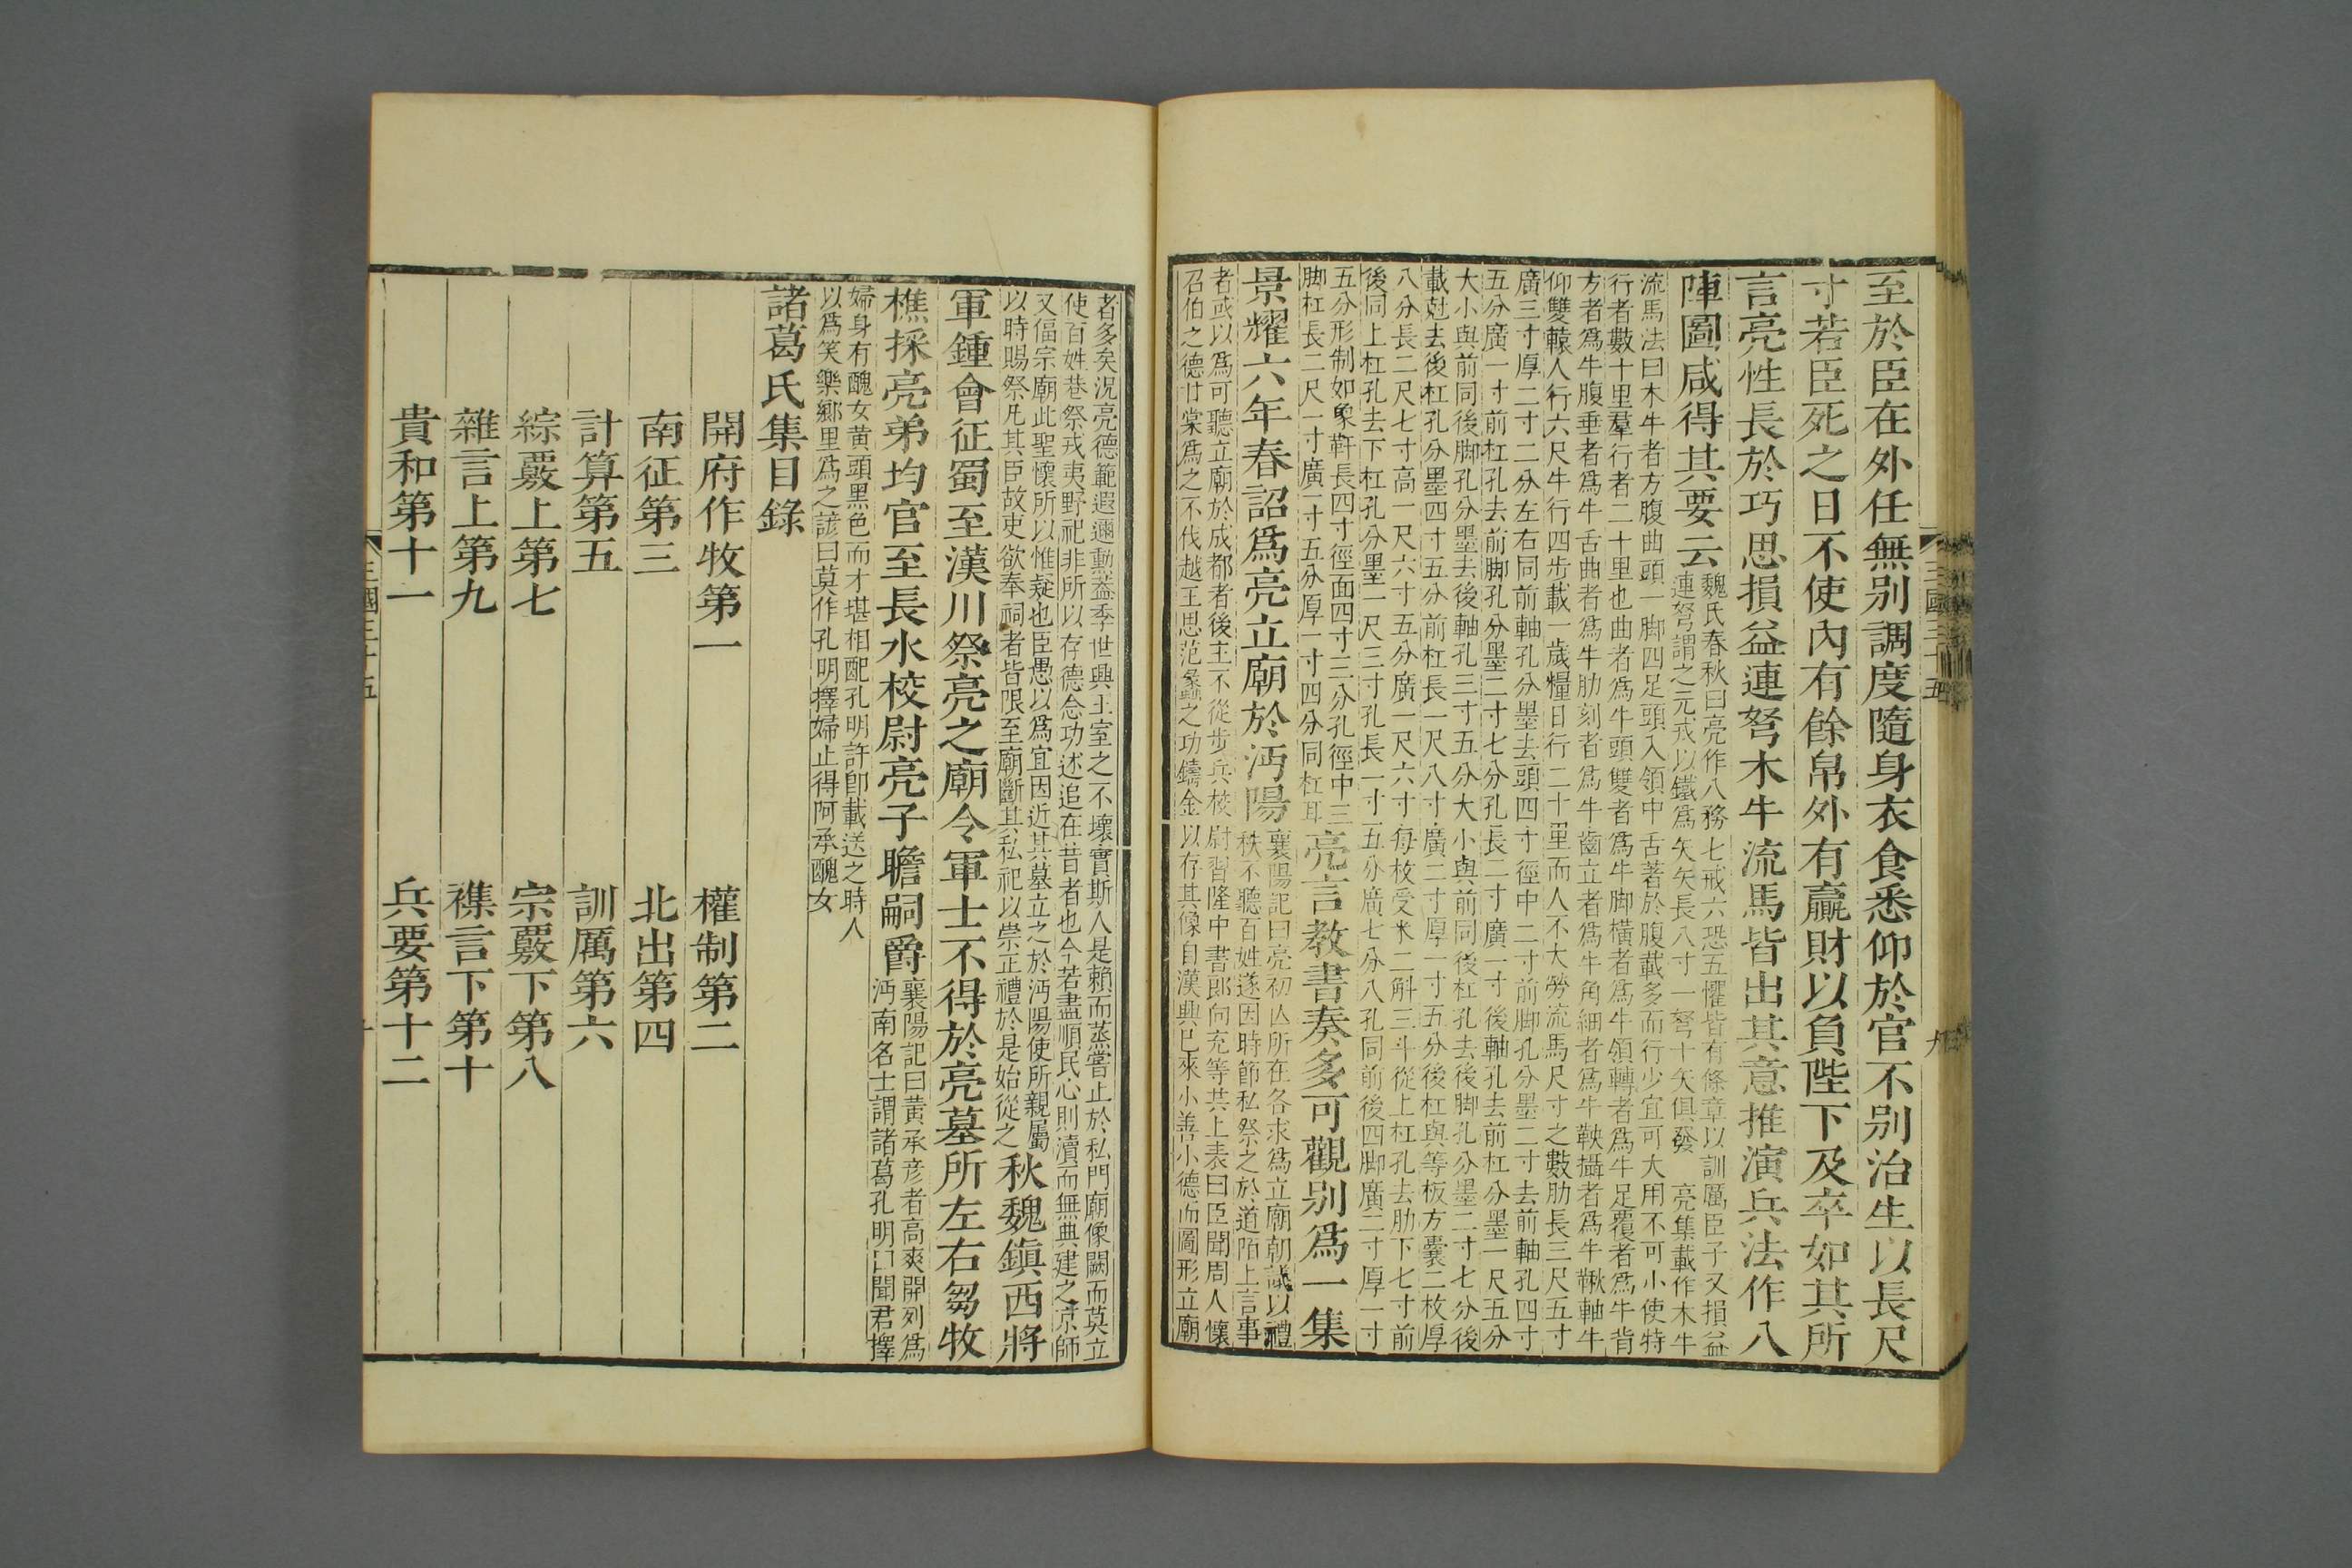 至於臣在外任無别調度隨身衣食悉仰於官不别治生以長尺
寸若臣死之日不使內有餘帛外有贏財以負陛下及卒如其所
言亮性長於巧思損益連弩木牛流馬皆出其意推演兵法作八
陣圖咸得其要云
魏氏春秋曰亮作八務七戒六恐五懼皆有條章以訓厲臣子又損益
連弩謂之元戎以鐵爲矢矢長八寸一弩十矢俱發 亮集載作木牛
流馬法曰木牛者方腹曲頭一脚四足頭入領中舌著於腹載多而行少宜可大用不可小使特
行者數十里羣行者二十里也曲者爲牛頭雙者爲牛脚橫者爲牛領轉者爲牛足覆者爲牛背
方者爲牛腹垂者爲牛舌曲者爲牛肋刻者爲牛齒立者爲牛角細者爲牛鞅攝者爲牛鞦軸牛
仰雙轅人行六尺牛行四步載一歲糧日行二十里而人不大勞流馬尺寸之數肋長三尺五寸
廣三寸厚二寸二分左右同前軸孔分墨去頭四寸徑中二寸前脚孔分墨二寸去前軸孔四寸
五分廣一寸前杠孔去前脚孔分墨二寸七分孔長二寸廣一寸後軸孔去前杠分墨一尺五分
大小與前同後脚孔分墨去後軸孔三寸五分大小與前同後杠孔去後脚孔分墨二寸七分後
載尅去後杠孔分墨四寸五分前杠長一尺八寸廣二寸厚一寸五分後杠與等板方囊二枚厚
八分長二尺七寸高一尺六寸五分廣一尺六寸每枚受米二斛三斗從上杠孔去肋下七寸前
後同上杠孔去下杠孔分墨一尺三寸孔長一寸五分廣七分八孔同前後四脚廣二寸厚一寸
五分形制如象靬長四寸徑面四寸三分孔徑中三
脚杠長二尺一寸廣一寸五分厚一寸四分同杠耳
亮言教書奏多可觀别爲一集
景耀六年春詔爲亮立廟於沔陽
襄陽記曰亮初亾所在各求爲立廟朝議以禮
秩不聽百姓遂因時節私祭之於道陌上言事
者或以爲可聽立廟於成都者後主不從步兵校尉習隆中書郎向充等共上表曰臣聞周人懷
召伯之德甘棠爲之不伐越王思范蠡之功鑄金以存其像自漢興已來小善小德而圖形立廟
三國三十五
九
者多矣況亮德範遐邇勳蓋季世興王室之不壞實斯人是賴而蒸嘗止於私門廟像闕而莫立
使百姓巷祭戎夷野祀非所以存德念功述追在昔者也今若盡順民心則瀆而無典建之京師
又偪宗廟此聖懷所以惟疑也臣愚以爲宜因近其墓立之於沔陽使所親屬
以時賜祭凡其臣故吏欲奉祠者皆限至廟斷其私祀以崇正禮於是始從之
秋魏鎭西將
軍鍾會征蜀至漢川祭亮之廟令軍士不得於亮墓所左右芻牧
樵採亮弟均官至長水校尉亮子瞻嗣爵
襄陽記曰黃承彦者高爽開列爲
沔南名士謂諸葛孔明曰聞君擇
婦身有醜女黄頭黑色而才堪相配孔明許卽載送之時人
以爲笑樂鄉里爲之諺曰莫作孔明擇婦止得阿承醜女
諸葛氏集目錄
開府作牧第一 權制第二
南征第三 北出第四
計算第五 訓厲第六
綜覈上第七 宗覈下第八
雜言上第九 襍言下第十
貴和第十一 兵要第十二
三國三十五